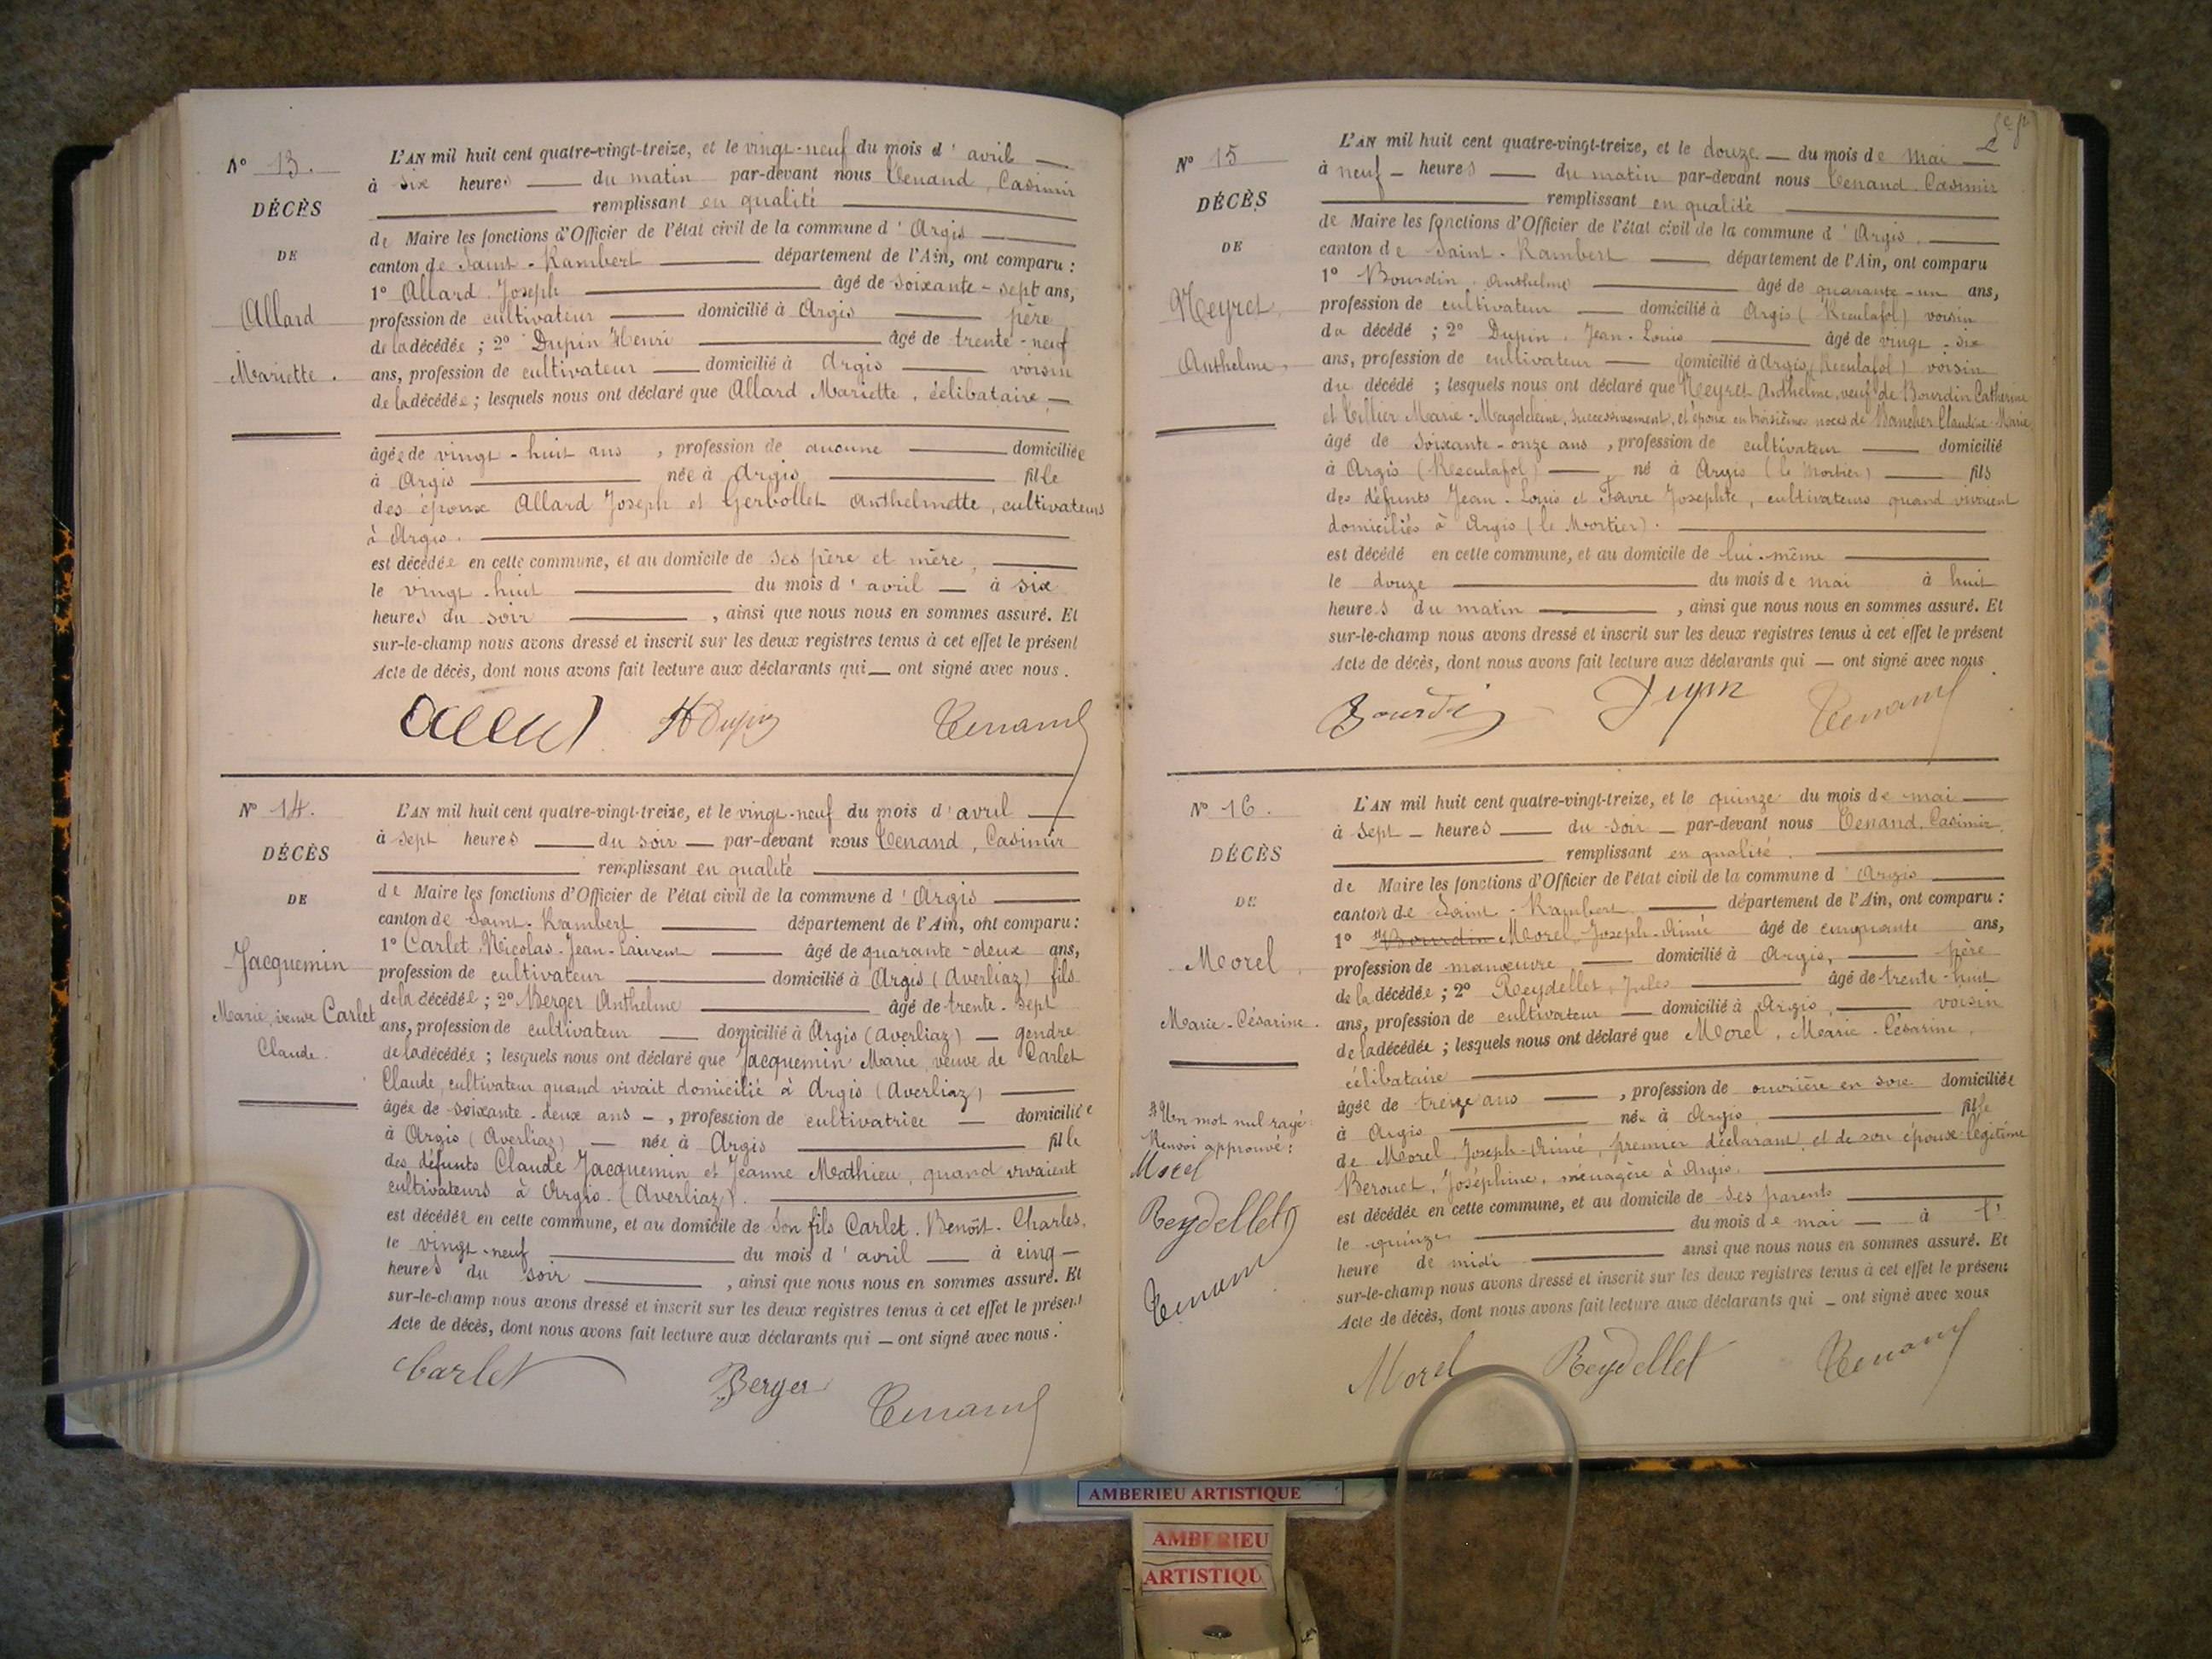 N° 13.
DÉCÈS
DE
Allard
Mariette.
L'AN mil huit cent quatre-vingt-treize, et le vingt-neuf du mois d'avril
à six heures du matin par-devant nous Tenand, Casimir
remplissant en qualité
de Maire les fonctions d'Officier de l'état civil de la commune d'Argis
canton de Saint-Rambert département de l'Ain, ont comparu :
1° Allard Joseph âgé de soixante-sept ans,
profession de cultivateur domicilié à Argis père
de la décédée ; 2° Dupin Henri âgé de trente-neuf
ans, profession de cultivateur domicilié à Argis voisin
de la décédée ; lesquels nous ont déclaré que Allard Mariette, célibataire
âgée de vingt-huit ans, profession de aucune domiciliée
à Argis née à Argis fille
des époux Allard Joseph et Gerbollet Anthelmette, cultivateurs
à Argis.
est décédée en cette commune, et au domicile de ses père et mère,
le vingt-huit du mois d'avril à six
heures du soir, ainsi que nous nous en sommes assuré. Et
sur-le-champ nous avons dressé et inscrit sur les deux registres tenus à cet effet le présent
Acte de décès, dont nous avons fait lecture aux déclarants qui ont signé avec nous.
Allard H Dupin Tenand
N° 14.
DÉCÈS
DE
Jacquemin
Marie, veuve Carlet
Claude.
L'AN mil huit cent quatre-vingt-treize, et le vingt-neuf du mois d'avril
à sept heures du soir par-devant nous Tenand, Casimir
remplissant en qualité
de Maire les fonctions d'Officier de l'état civil de la commune d'Argis
canton de Saint-Rambert département de l'Ain, ont comparu :
1° Carlet Nicolas-Jean-Laurent âgé de quarante-deux ans,
profession de cultivateur domicilié à Argis (Averliaz) fils
de la décédée ; 2° Berger Anthelme âgé de trente-sept
ans, profession de cultivateur domicilié à Argis (Averliaz) gendre
de la décédée ; lesquels nous ont déclaré que Jacquemin Marie, veuve de Carlet
Claude, cultivateur quand vivait domicilié à Argis (Averliaz)
âgée de soixante-deux ans, profession de cultivatrice domiciliée
à Argis (Averliaz) née à Argis fille
des défunts Claude Jacquemin et Jeanne Mathieu, quand vivaient
cultivateurs à Argis (Averliaz).
est décédée en cette commune, et au domicile de son fils Carlet Benoît-Charles,
le vingt-neuf du mois d'avril à cinq
heures du soir, ainsi que nous nous en sommes assuré. Et
sur-le-champ nous avons dressé et inscrit sur les deux registres tenus à cet effet le présent
Acte de décès, dont nous avons fait lecture aux déclarants qui ont signé avec nous.
Carlet Berger Tenand
N° 15
DÉCÈS
DE
Neyret
Anthelme,
L'AN mil huit cent quatre-vingt-treize, et le douze du mois de mai
à neuf heures du matin par-devant nous Tenand Casimir
remplissant en qualité
de Maire les fonctions d'Officier de l'état civil de la commune d'Argis,
canton de Saint-Rambert département de l'Ain, ont comparu
1° Bourdin Anthelme âgé de quarante-un ans,
profession de cultivateur domicilié à Argis (Reculafol) voisin
du décédé ; 2° Dupin, Jean-Louis âgé de vingt-six
ans, profession de cultivateur domicilié à Argis (Reculafol) voisin
du décédé ; lesquels nous ont déclaré que Neyret Anthelme, veuf de Bourdin Catherine
et Tillier Marie-Magdeleine, successivement, et époux en troisièmes noces de Claudine Marie
âgé de soixante-onze ans, profession de cultivateur domicilié
à Argis (Reculafol) né à Argis (le Mortier) fils
des défunts Jean-Louis et Favre Josephte, cultivateurs quand vivaient
domiciliés à Argis (le Mortier).
est décédé en cette commune, et au domicile de lui-même
le douze du mois de mai à huit
heures du matin, ainsi que nous nous en sommes assuré. Et
sur-le-champ nous avons dressé et inscrit sur les deux registres tenus à cet effet le présent
Acte de décès, dont nous avons fait lecture aux déclarants qui ont signé avec nous.
Bourdin Dupin Tenand
N° 16.
DÉCÈS
DE
Morel,
Marie-Césarine.
Un mot nul rayé.
Renvoi approuvé :
Morel
Reydellet
Tenand
L'AN mil huit cent quatre-vingt-treize, et le quinze du mois de mai
à sept heures du soir par-devant nous Tenand, Casimir,
remplissant en qualité.
de Maire les fonctions d'Officier de l'état civil de la commune d'Argis
canton de Saint-Rambert département de l'Ain, ont comparu :
1° Bourdin Morel, Joseph-Aimé âgé de cinquante ans,
profession de manœuvre domicilié à Argis, père
de la décédée ; 2° Reydellet, Jules âgé de trente-huit
ans, profession de cultivateur domicilié à Argis, voisin
de la décédée ; lesquels nous ont déclaré que Morel, Marie-Césarine,
célibataire
âgée de treize ans, profession de ouvrière en soie domiciliée
à Argis née à Argis fille
de Morel Joseph-Aimé, premier déclarant et de son épouse légitime
Berouet, Joséphine, ménagère à Argis.
est décédée en cette commune, et au domicile de ses parents
le quinze du mois de mai à l'
heure de midi ainsi que nous nous en sommes assuré. Et
sur-le-champ nous avons dressé et inscrit sur les deux registres tenus à cet effet le présent
Acte de décès, dont nous avons fait lecture aux déclarants qui ont signé avec nous
Morel Reydellet Tenand
AMBERIEU ARTISTIQUE
AMBERIEU
ARTISTIQU